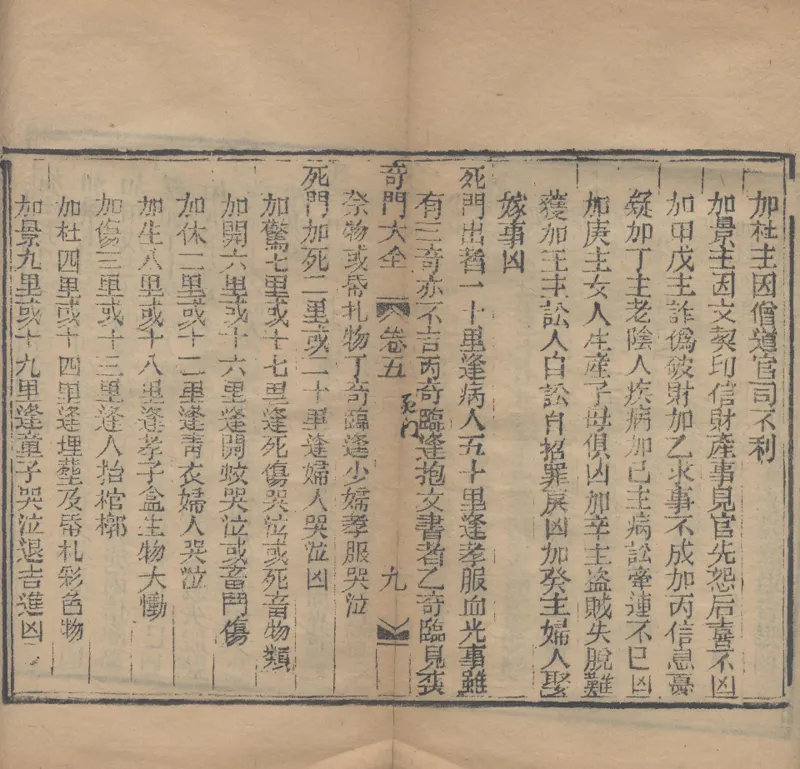 加杜主因僧道官司不利
加景主因文契印信財產事見官先怨后喜不凶
加甲戊主詐僞破財加乙求事不成加丙信息憂
疑加丁主老陰人疾病加己主病訟牽連不已凶
加庚主女人生產子母俱凶加辛主盜賊失脫難
獲加壬主訟人自訟自招罪戾凶加癸主婦人娶
嫁事凶
死門出皆一十里逢病人五十里逢孝服血光事雖
有三奇亦不吉丙奇臨逢抱文書者乙奇臨見喪
奇門大全 卷五 死门 九
祭物或昏札物丁奇臨逢少孀孝服哭泣
死門加死二里或二十里逢婦人哭泣凶
加驚七里或十七里逢死傷哭泣或死畜物類
加開六里或十六里逢開蚊哭泣或畜鬥傷
加休二里或十二里逢靑衣婦人哭泣
加生八里或十八里逢孝子盒生物大慟
加傷三里或十三里逢人抬棺槨
加杜四里或十四里逢埋塟及昏札彩色物
加景九里或十九里逢童子哭泣退吉進凶